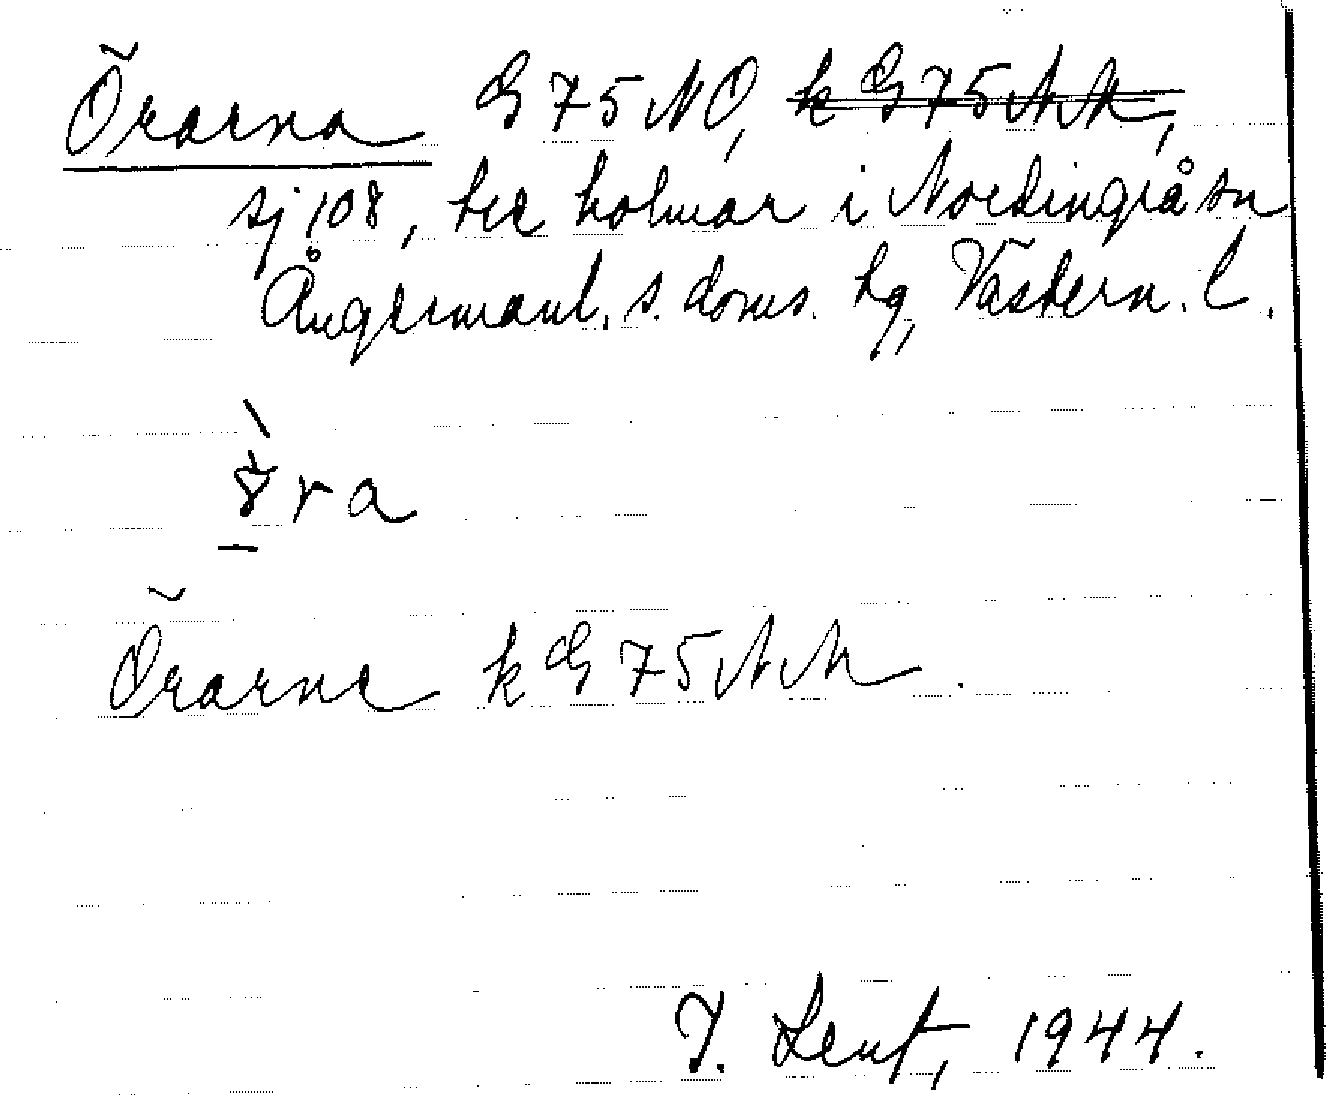 Örarna G 75 NO, k G 75 NM,
sj 108, tre holmar i Nordingrå sn
Ångermanl. s. doms. hg, Västern. l.
ra
Örarne k G 75 NM.
1944.